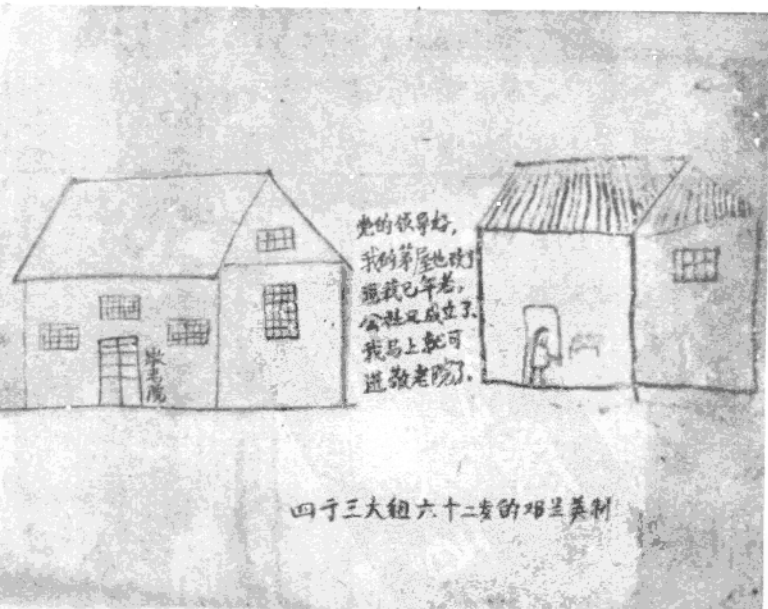 敬老院
党的领导好,
我的茅屋也改了
我已年老,
公社又成立了、
我马上就可
进敬老院了.
三大组六十二岁的邓兰英制